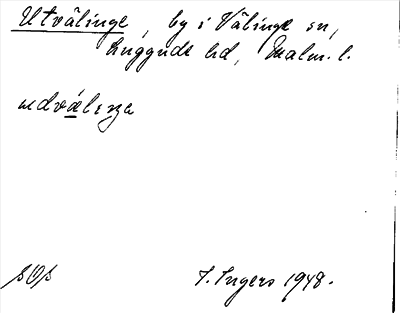 Utvälinge, by i Välinge sn,
Luggude hd, Malm. l.
udvälinga
SOS
I. Ingers 1948.